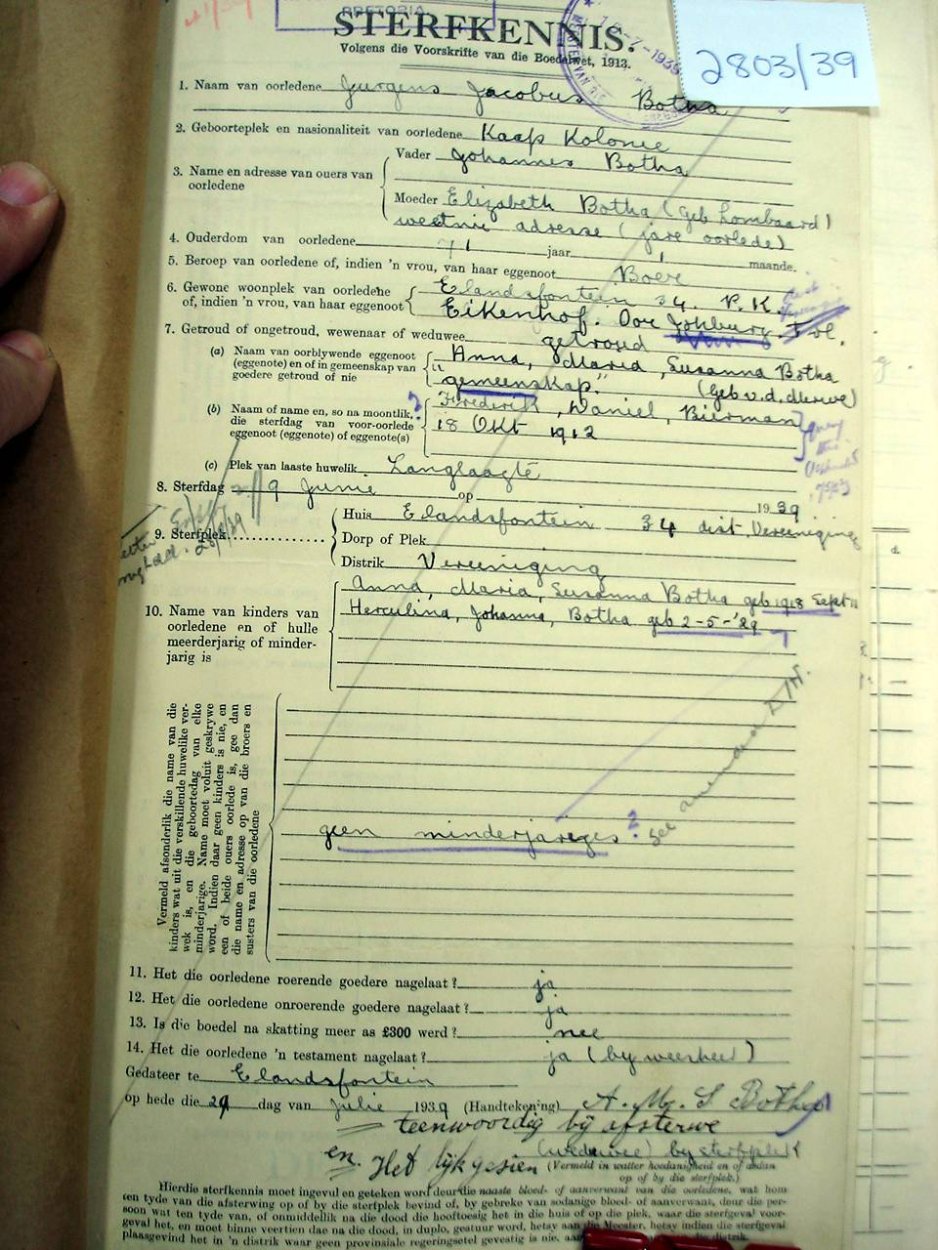 PRETORIA
STERFKENNIS.
Volgens die Voorskrifte van die Boedelwet, 1913.
2803/39
1. Naam van oorledene Jurgens Jacobus Botha
2. Geboorteplek en nasionaliteit van oorledene Kaap Kolonie
3. Name en adresse van ouers van oorledene
Vader Johannes Botha
Moeder Elizabeth Botha (geb Lombaard)
adresse (jare oorlede)
4. Ouderdom van oorledene 71 jaar maande.
5. Beroep van oorledene of, indien 'n vrou, van haar eggenoot Boer
6. Gewone woonplek van oorledene
of, indien 'n vrou, van haar eggenoot
Elandsfontein 34. P.K.
Eikenhof. Oor Johburg. Tvl.
7. Getroud of ongetroud, wewenaar of weduwee getroud
(a) Naam van oorblywende eggenoot
(eggenote) en of in gemeenskap van
goedere getroud of nie
Anna, Maria, Susanna Botha
"gemeenskap" (geb v.d. Merwe)
(b) Naam of name en, so na moontlik,
die sterfdag van voor-oorlede
eggenoot (eggenote) of eggenote(s)
? Frederik, Daniel, Bierman
18 Okt 1912
(c) Plek van laaste huwelik Langlaagte
8. Sterfdag 9 Junie op 1939
9. Sterfplek
Huis Elandsfontein 34 dist. Vereeniging
Dorp of Plek
Distrik Vereeniging
10. Name van kinders van
oorledene en of hulle
meerderjarig of minder-
jarig is
Anna, Maria, Susanna Botha geb 1918 Sept 11
Herculina, Johanna, Botha geb 2-5-'29
Vermeld afsonderlik die name van die
kinders wat uit die verskillende huwelike ver-
wek is, en die geboortedag van elke
minderjarige. Name moet voluit geskrywe
word. Indien daar geen kinders is nie, en
een of beide ouers oorlede is, gee dan
die name en adresse op van die broers en
susters van die oorledene
geen minderjareges ? See
11. Het die oorledene roerende goedere nagelaat? ja
12. Het die oorledene onroerende goedere nagelaat? ja
13. Is die boedel na skatting meer as £300 werd? nee
14. Het die oorledene 'n testament nagelaat? ja (by weesheer)
Gedateer te Elandsfontein
op hede die 29 dag van Julie 1939 (Handtekening) A. M. S Botha
teenwoordig by afsterwe
(weduwee) by sterfplek
en Het lyk gesien (Vermeld in watter hoedanigheid en of aldan
op of by die sterfplek.)
Hierdie sterfkennis moet ingevul en geteken word deur die naaste bloed- of aanverwant van die oorledene, wat hom
ten tyde van die afsterwing op of by die sterfplek bevind of, by gebreke van sodanige bloed- of aanverwant, deur die per-
soon wat ten tyde van, of onmiddellik na die dood die hooftoesig het in die huis of op die plek, waar die sterfgeval voor-
geval het, en moet binne veertien dae na die dood, in duplo, gestuur word, hetsy aan die Meester, hetsy indien die sterfgeval
plaasgevind het in 'n distrik waar geen provinsiale regeringsetel gevestig is nie, aan die distrik.